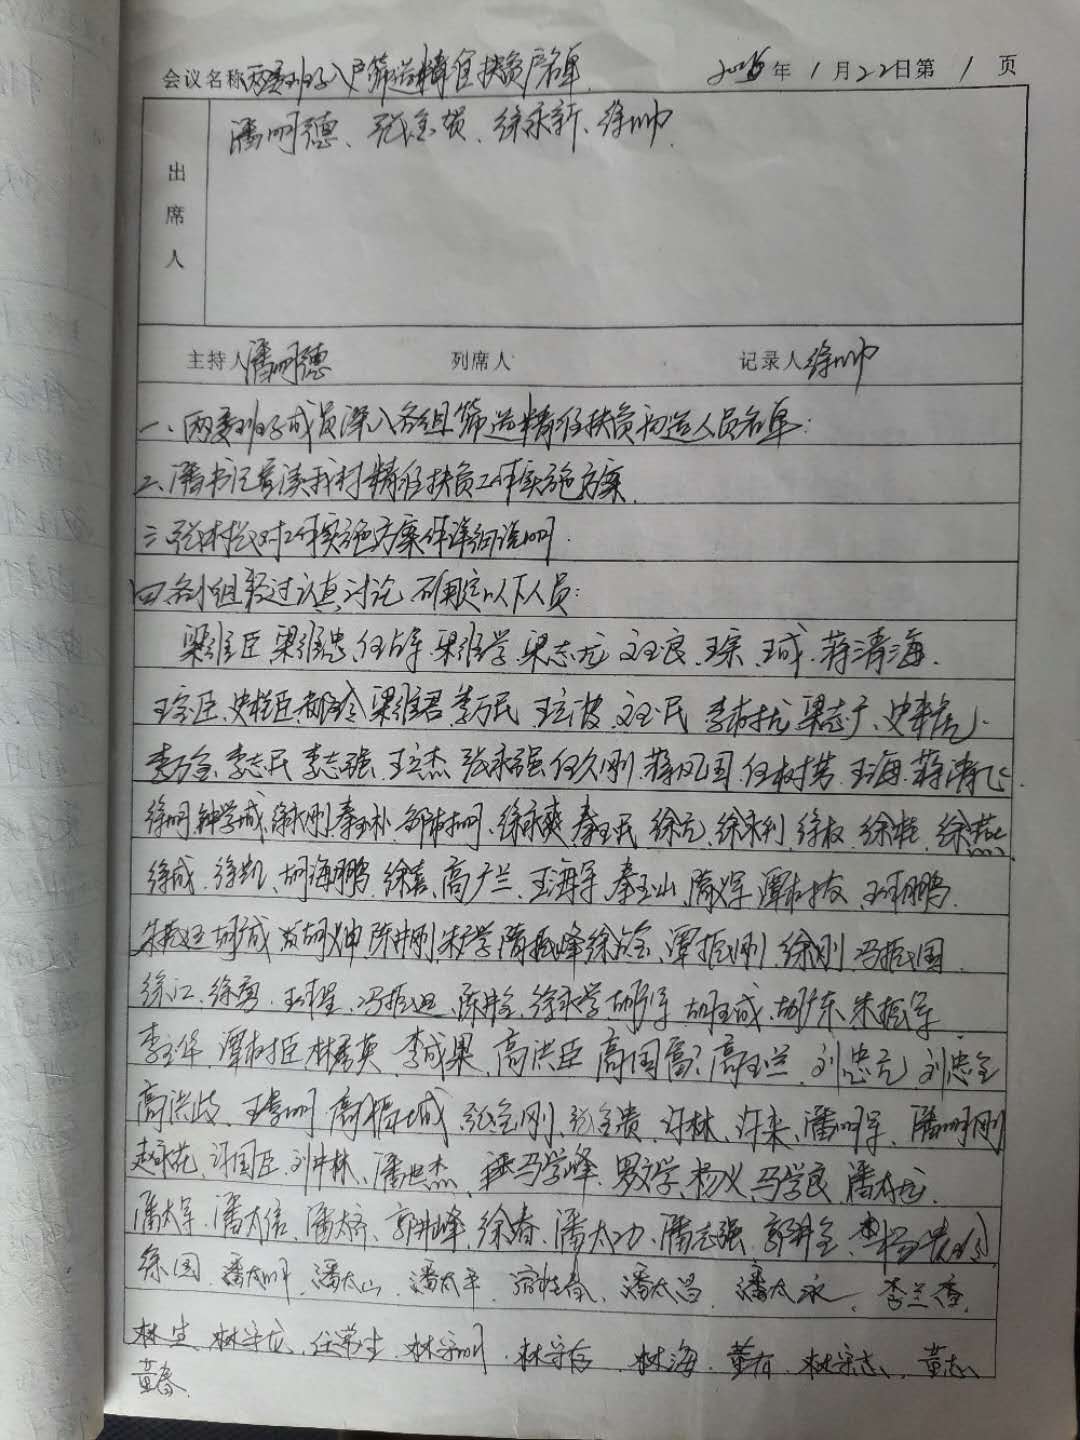 会议名称 两委班子入户筛选精准扶贫户名单 年1月22日第1页
潘明德、张金贺、徐永新、徐帅
出席人
主持人 潘明德 列席人 记录人 徐帅
一、两委班子成员深入各组筛选精准扶贫初选人员名单:
二、潘书记宣读我村精准扶贫工作实施方案
三、张村长对工作实施方案作详细说明
四、各小组经过认真讨论 确定以下人员:
梁维臣 梁维忠 任占军 梁维学 梁志龙 文良 王宗 王成 蒋清海
王宝臣 史桂臣 梁维君 李万民 王立波 民 李树龙 梁志广、史
李万金、李志民 李志强 王立杰 张永强 任久刚 蒋凡国 任树芳 王海 蒋清飞
徐明 钟学成 徐永刚 秦玉朴 邹树明、徐永爽 秦玉民 徐元 徐永利 徐权 徐桩 徐燕
徐成 徐凯、胡海鹏 徐喜 高广兰 王海军 秦玉山 隋义军 谭树友 王鹏
胡成 胡义申 陈井刚 朱广学 隋振峰 徐金 谭振刚 徐刚 冯振国
徐江、徐勇 王星、冯振 陈井全 徐永学 胡军 胡玉成、胡广东 朱振军
李玉华 谭树臣 林秀英 李成果 高洪臣 高国富 高玉兰 刘忠元 刘忠全
高洪岐、王李明 高振成 张金刚、张金贵、许林、许来、潘明军 潘明刚
赵永花、许国臣、刘井林、潘世杰 马学峰 罗文学 杨义 马学良 潘太龙
潘太军 潘太信 潘太齐、郭井峰 徐春、潘太功、潘志强 郭井全、李
徐国 潘太明、潘太山、潘太平 宿桂春、潘太昌 潘太永、李兰香
林生 林守龙、任常生 林守明 林守存 林海 董有、林守志、董志
董春